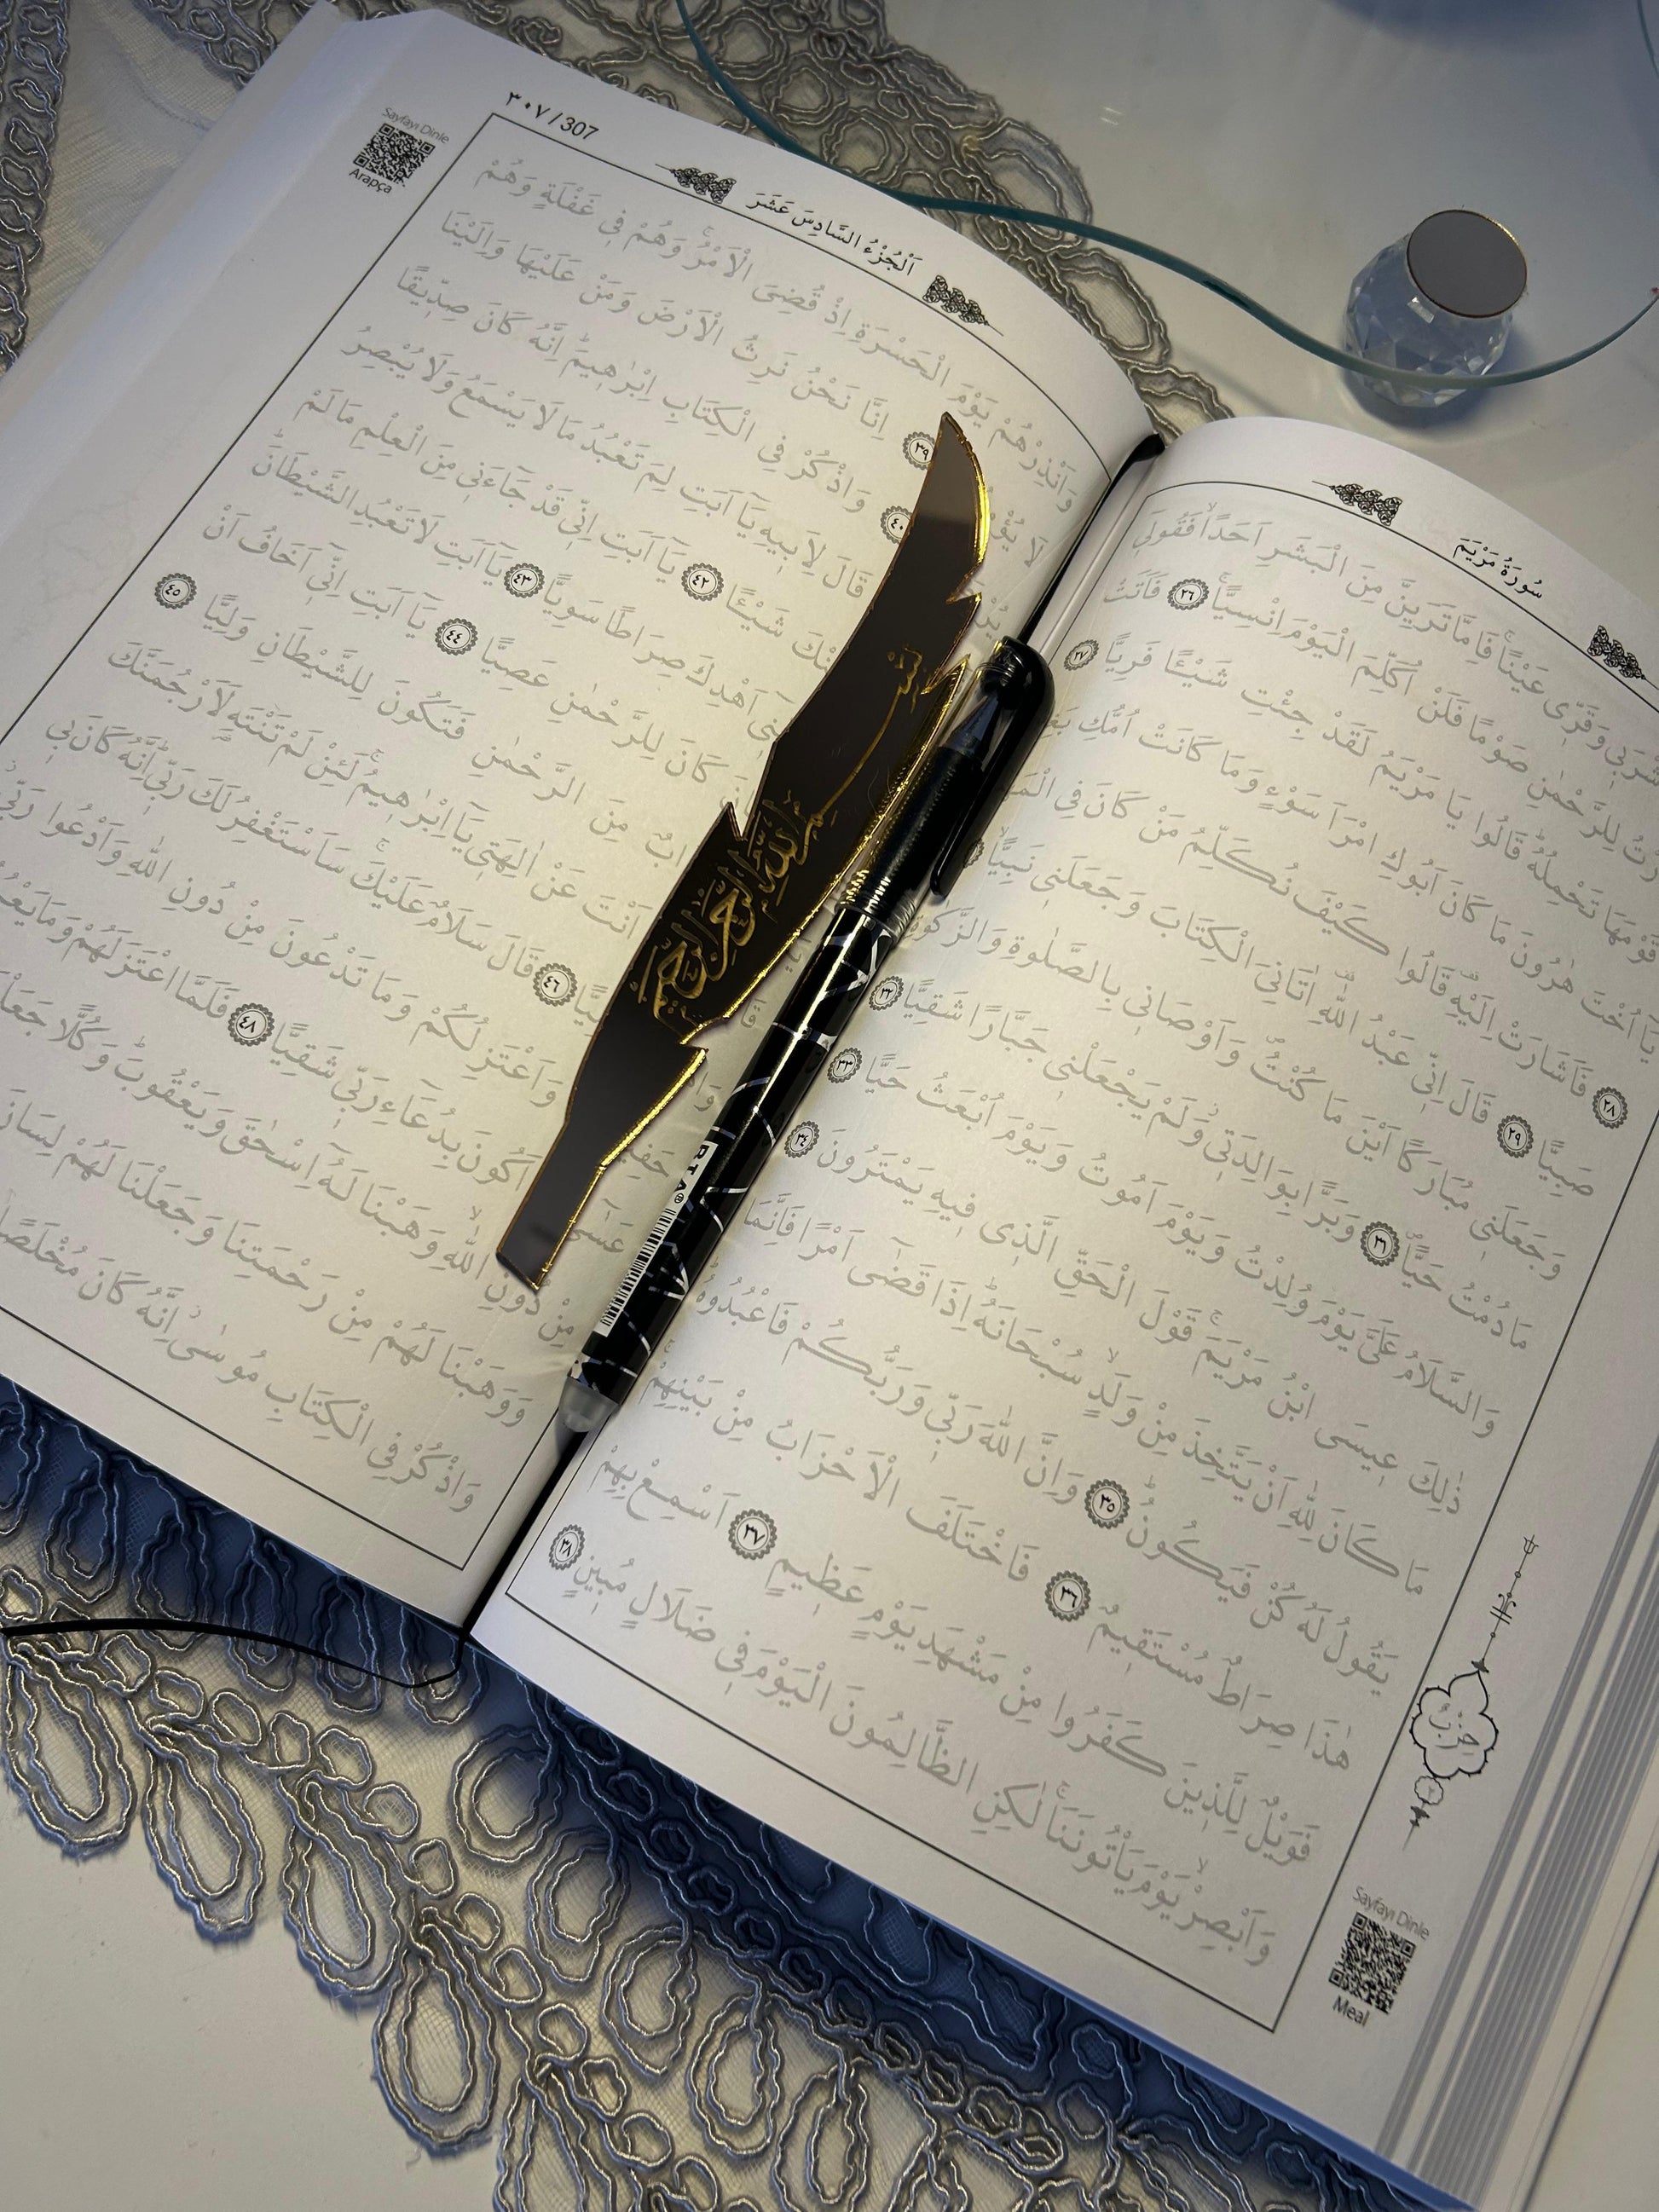 سُورَةُ مَرْيَمَ
وَقَرّٖى عَيْنًاۚ فَاِمَّا تَرَيِنَّ مِنَ الْبَشَرِ اَحَدًاۙ فَقُولٖٓى
لِلرَّحْمٰنِ صَوْمًا فَلَنْ اُكَلِّمَ الْيَوْمَ اِنْسِيًّاۚ ٢٦ فَاَتَتْ
قَوْمَهَا تَحْمِلُهُۜ قَالُوا يَا مَرْيَمُ لَقَدْ جِئْتِ شَيْـًٔا فَرِيًّا ٢٧
يَٓا اُخْتَ هٰرُونَ مَا كَانَ اَبُوكِ امْرَاَ سَوْءٍ وَمَا كَانَتْ اُمُّكِ
٢٨ فَاَشَارَتْ اِلَيْهِۜ قَالُوا كَيْفَ نُكَلِّمُ مَنْ كَانَ فِى
صَبِيًّا ٢٩ قَالَ اِنّٖى عَبْدُ اللّٰهِۜ اٰتَانِىَ الْكِتَابَ وَجَعَلَنٖى نَبِيًّاۙ
وَجَعَلَنٖى مُبَارَكًا اَيْنَ مَا كُنْتُۖ وَاَوْصَانٖى بِالصَّلٰوةِ وَالزَّكٰوةِ
مَا دُمْتُ حَيًّاۖ ٣١ وَبَرًّا بِوَالِدَتٖىۘ وَلَمْ يَجْعَلْنٖى جَبَّارًا شَقِيًّا ٣٢
وَالسَّلَامُ عَلَىَّ يَوْمَ وُلِدْتُ وَيَوْمَ اَمُوتُ وَيَوْمَ اُبْعَثُ حَيًّا ٣٣
ذٰلِكَ عٖيسَى ابْنُ مَرْيَمَۚ قَوْلَ الْحَقِّ الَّذٖى فٖيهِ يَمْتَرُونَ ٣٤
مَا كَانَ لِلّٰهِ اَنْ يَتَّخِذَ مِنْ وَلَدٍۙ سُبْحَانَهُۜ اِذَا قَضٰٓى اَمْرًا فَاِنَّمَا
يَقُولُ لَهُ كُنْ فَيَكُونُۜ ٣٥ وَاِنَّ اللّٰهَ رَبّٖى وَرَبُّكُمْ فَاعْبُدُوهُۜ
هٰذَا صِرَاطٌ مُسْتَقٖيمٌ ٣٦ فَاخْتَلَفَ الْاَحْزَابُ مِنْ بَيْنِهِمْۚ
فَوَيْلٌ لِلَّذٖينَ كَفَرُوا مِنْ مَشْهَدِ يَوْمٍ عَظٖيمٍ ٣٧ اَسْمِعْ بِهِمْ
وَاَبْصِرْۙ يَوْمَ يَأْتُونَنَاۚ لٰكِنِ الظَّالِمُونَ الْيَوْمَ فٖى ضَلَالٍ مُبٖينٍ ٣٨
حِزْبْ
Sayfayı Dinle
Meal
٣٠٧ / 307
Sayfayı Dinle
Arapça
اَلْجُزْءُ السَّادِسَ عَشَرَ
وَاَنْذِرْهُمْ يَوْمَ الْحَسْرَةِ اِذْ قُضِىَ الْاَمْرُۚ وَهُمْ فٖى غَفْلَةٍ وَهُمْ
لَا ٣٩ اِنَّا نَحْنُ نَرِثُ الْاَرْضَ وَمَنْ عَلَيْهَا وَاِلَيْنَا
٤٠ وَاذْكُرْ فِى الْكِتَابِ اِبْرٰهٖيمَۜ اِنَّهُ كَانَ صِدّٖيقًا
قَالَ لِاَبٖيهِ يَٓا اَبَتِ لِمَ تَعْبُدُ مَا لَا يَسْمَعُ وَلَا يُبْصِرُ
شَيْـًٔا ٤٢ يَٓا اَبَتِ اِنّٖى قَدْ جَٓاءَنٖى مِنَ الْعِلْمِ مَا لَمْ
اَهْدِكَ صِرَاطًا سَوِيًّا ٤٣ يَٓا اَبَتِ لَا تَعْبُدِ الشَّيْطَانَۜ
كَانَ لِلرَّحْمٰنِ عَصِيًّا ٤٤ يَٓا اَبَتِ اِنّٖٓى اَخَافُ اَنْ
مِنَ الرَّحْمٰنِ فَتَكُونَ لِلشَّيْطَانِ وَلِيًّا ٤٥
اَنْتَ عَنْ اٰلِهَتٖى يَٓا اِبْرٰهٖيمُۚ لَئِنْ لَمْ تَنْتَهِ لَاَرْجُمَنَّكَ
٤٦ قَالَ سَلَامٌ عَلَيْكَۚ سَاَسْتَغْفِرُ لَكَ رَبّٖىۜ اِنَّهُ كَانَ بٖى
وَاَعْتَزِلُكُمْ وَمَا تَدْعُونَ مِنْ دُونِ اللّٰهِ وَاَدْعُوا رَبّٖىۘ
عَسٰٓى اَكُونَ بِدُعَٓاءِ رَبّٖى شَقِيًّا ٤٨ فَلَمَّا اعْتَزَلَهُمْ وَمَا
مِنْ دُونِ اللّٰهِۙ وَهَبْنَا لَهُٓ اِسْحٰقَ وَيَعْقُوبَۜ وَكُلًّا
وَوَهَبْنَا لَهُمْ مِنْ رَحْمَتِنَا وَجَعَلْنَا لَهُمْ لِسَانَ
وَاذْكُرْ فِى الْكِتَابِ مُوسٰىۘ اِنَّهُ كَانَ مُخْلَصًا
بِسْمِ اللّٰهِ الرَّحْمٰنِ الرَّحٖيمِ